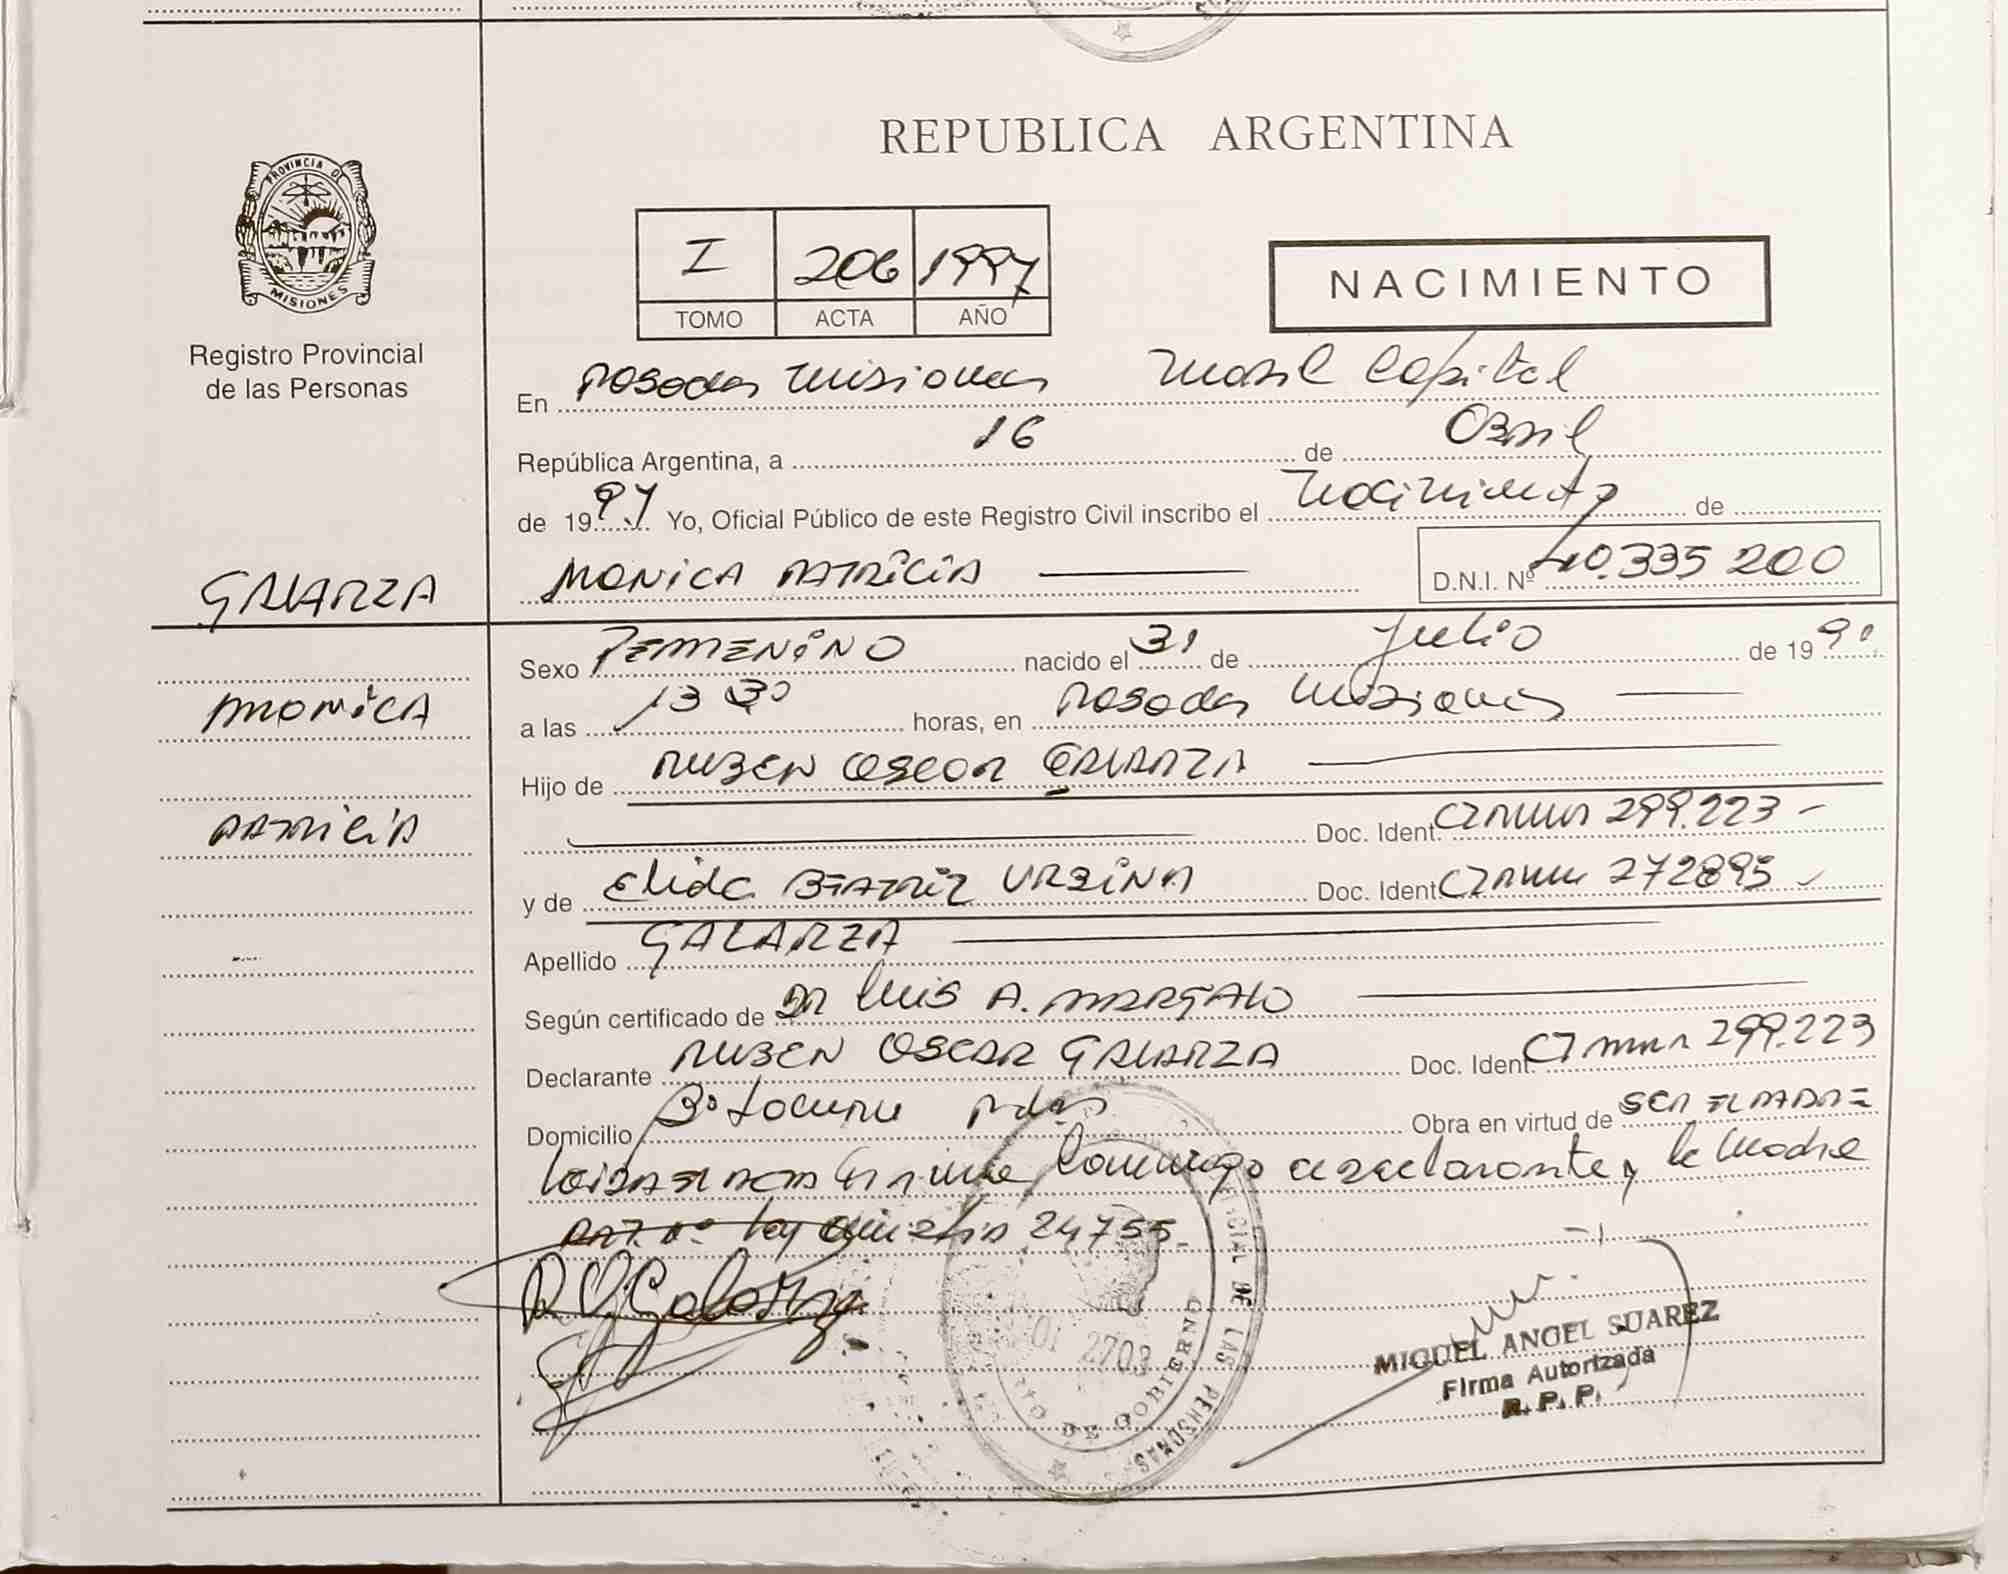 REPUBLICA ARGENTINA
PROVINCIA DE
MISIONES
Registro Provincial
de las Personas
I 206 1997
TOMO ACTA AÑO
NACIMIENTO
En Posadas Misiones Capital
República Argentina, a 16 de Abril
de 1997 Yo, Oficial Público de este Registro Civil inscribo el Nacimiento de
GALARZA MONICA PATRICIA D.N.I. Nº 40.335 200
Sexo FEMENINO nacido el 31 de Julio de 19 90
MONICA
a las 13 30 horas, en Posadas Misiones
Hijo de RUBEN OSCAR GALARZA
PATRICIA
Doc. Ident. 299.223
y de Elida BEATRIZ URBINA Doc. Ident 272895
Apellido GALARZA
Según certificado de DR Luis A. MARGALO
Declarante RUBEN OSCAR GALARZA Doc. Ident. 299.223
Domicilio Bº Pdas Obra en virtud de SER EL PADRE
Leida el acta firma conmigo el declarante y la madre
24755
R O Galarza
OFICIAL DE LAS PERSONAS
DE GOBIERNO
2703
MIGUEL ANGEL SUAREZ
Firma Autorizada
R. P. P.